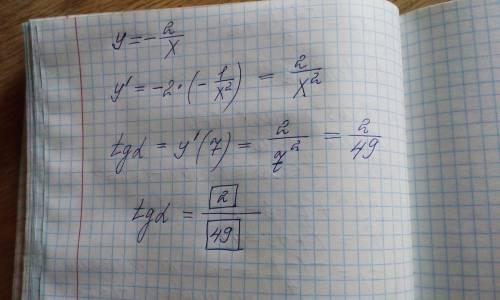 y = -2/x
y' = -2·(-1/x²) = 2/x²
tgα = y'(7) = 2/7² = 2/49
tgα = 2/49